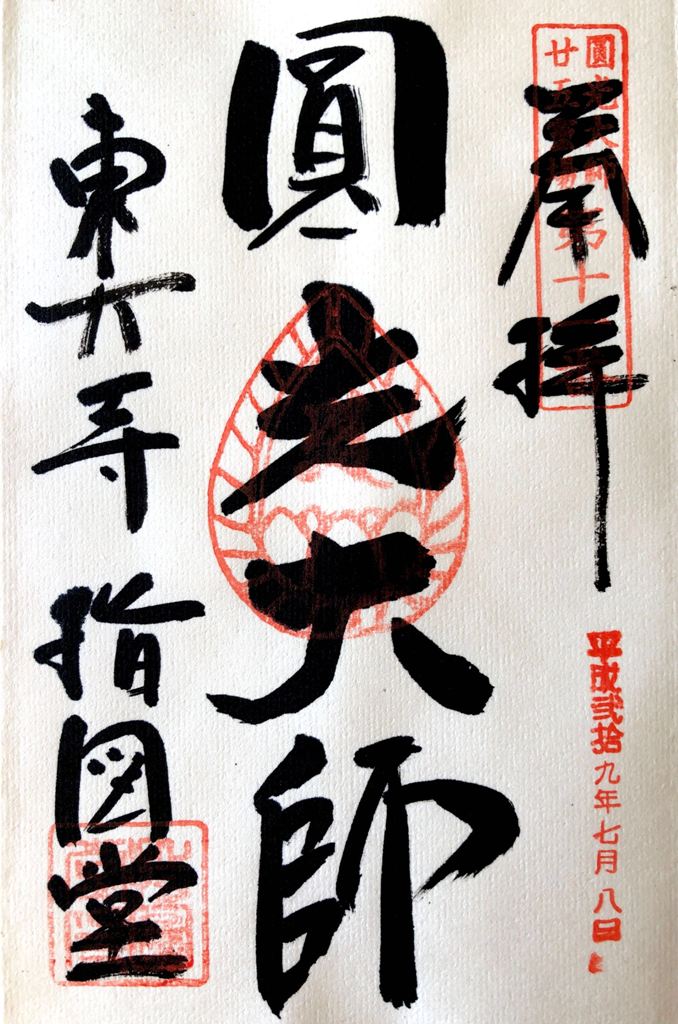 奉拝
圓光大師
廿五霊場第十一番
平成弐拾九年七月八日
圓光大師
東大寺
指図堂